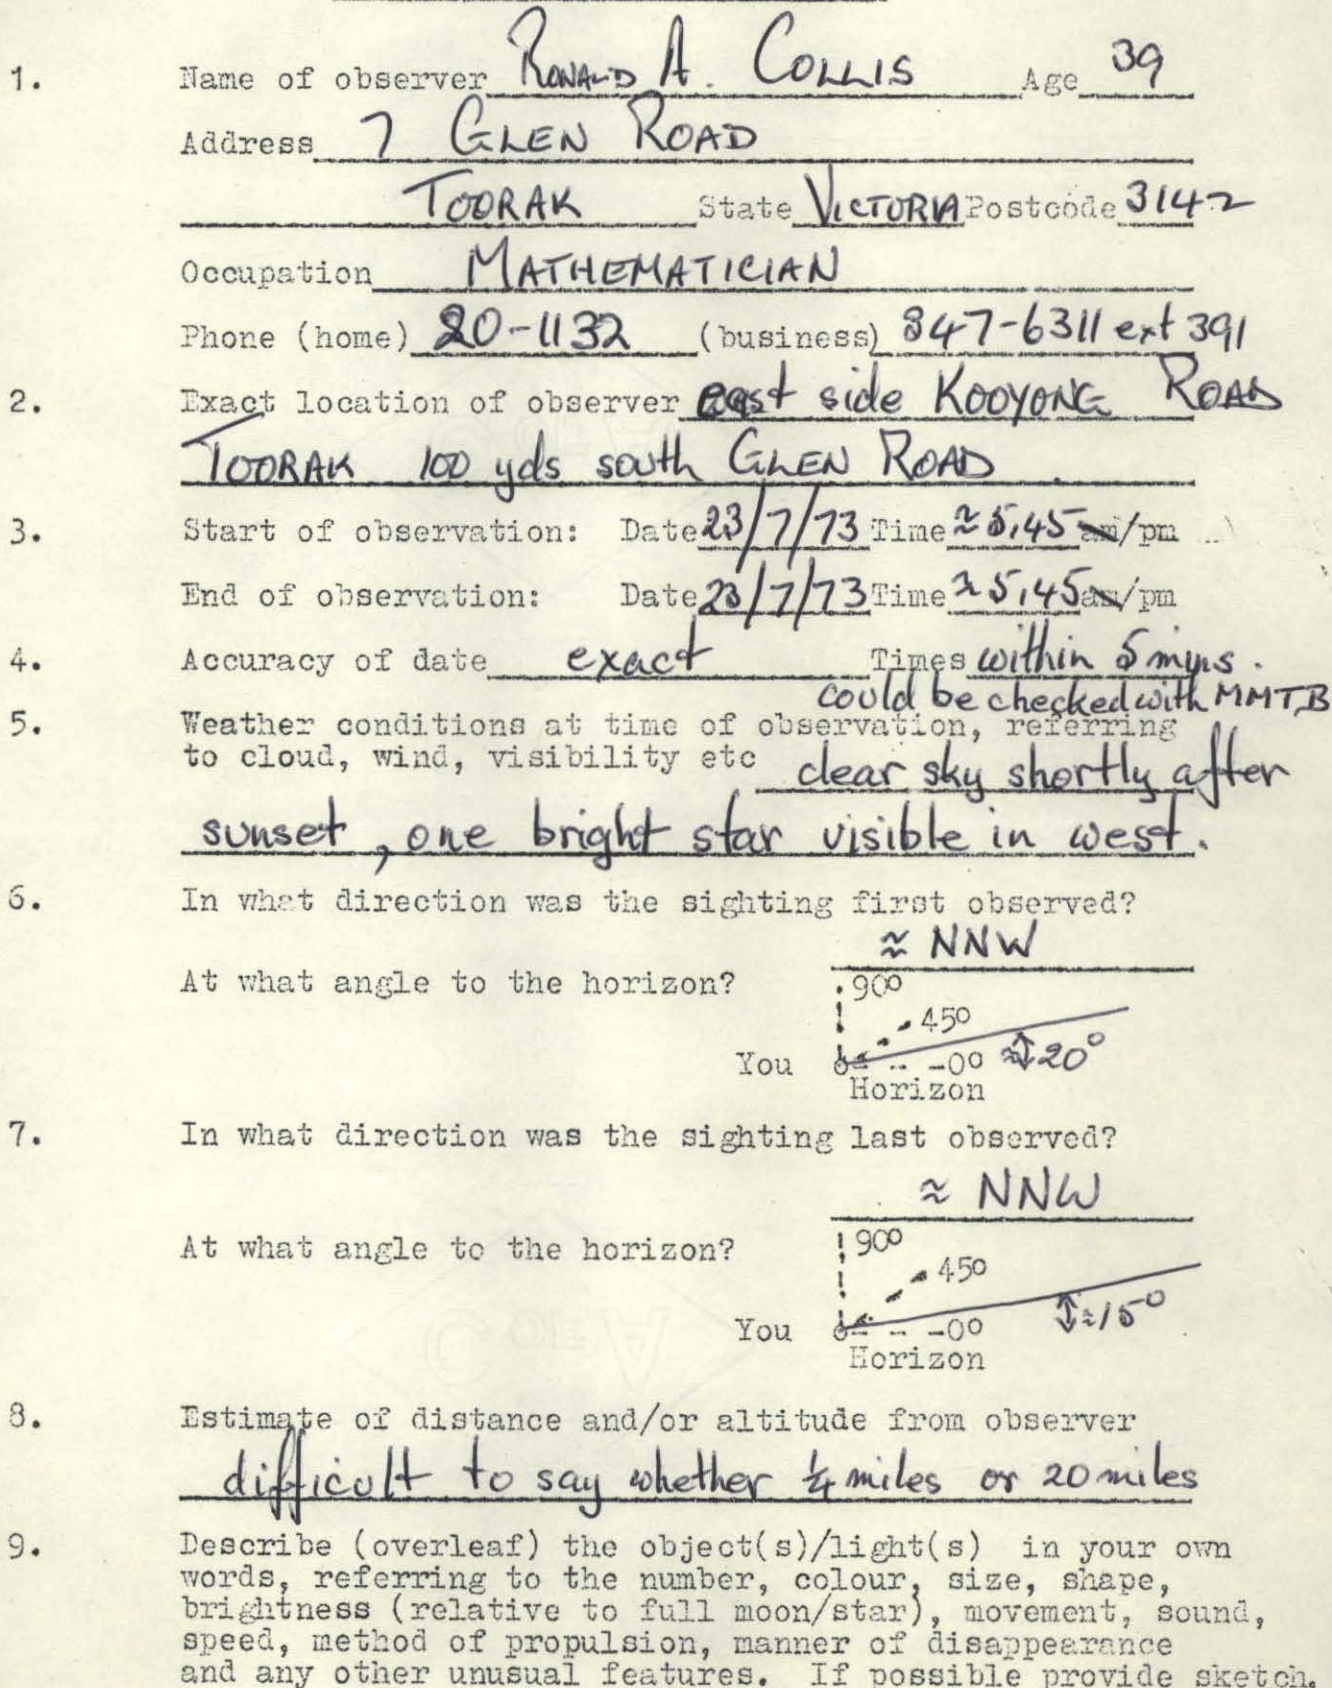 1. Name of observer RONALD A. COLLIS Age 39
Address 7 GLEN ROAD
TOORAK State VICTORIA Postcode 3142
Occupation MATHEMATICIAN
Phone (home) 20-1132 (business) 347-6311 ext 391
2. Exact location of observer east side KOOYONG ROAD
TOORAK 100 yds south GLEN ROAD
3. Start of observation: Date 23/7/73 Time ≈ 5.45 am/pm
End of observation: Date 23/7/73 Time ≈ 5.45 am/pm
4. Accuracy of date exact Times within 5 mins.
could be checked with MMTB
5. Weather conditions at time of observation, referring
to cloud, wind, visibility etc clear sky shortly after
sunset, one bright star visible in west.
6. In what direction was the sighting first observed?
≈ NNW
At what angle to the horizon? 90°
45°
You 0° ≈ 20°
Horizon
7. In what direction was the sighting last observed?
≈ NNW
At what angle to the horizon? 90°
45°
You 0° ≈ 15°
Horizon
8. Estimate of distance and/or altitude from observer
difficult to say whether ¼ miles or 20 miles
9. Describe (overleaf) the object(s)/light(s) in your own
words, referring to the number, colour, size, shape,
brightness (relative to full moon/star), movement, sound,
speed, method of propulsion, manner of disappearance
and any other unusual features. If possible provide sketch.